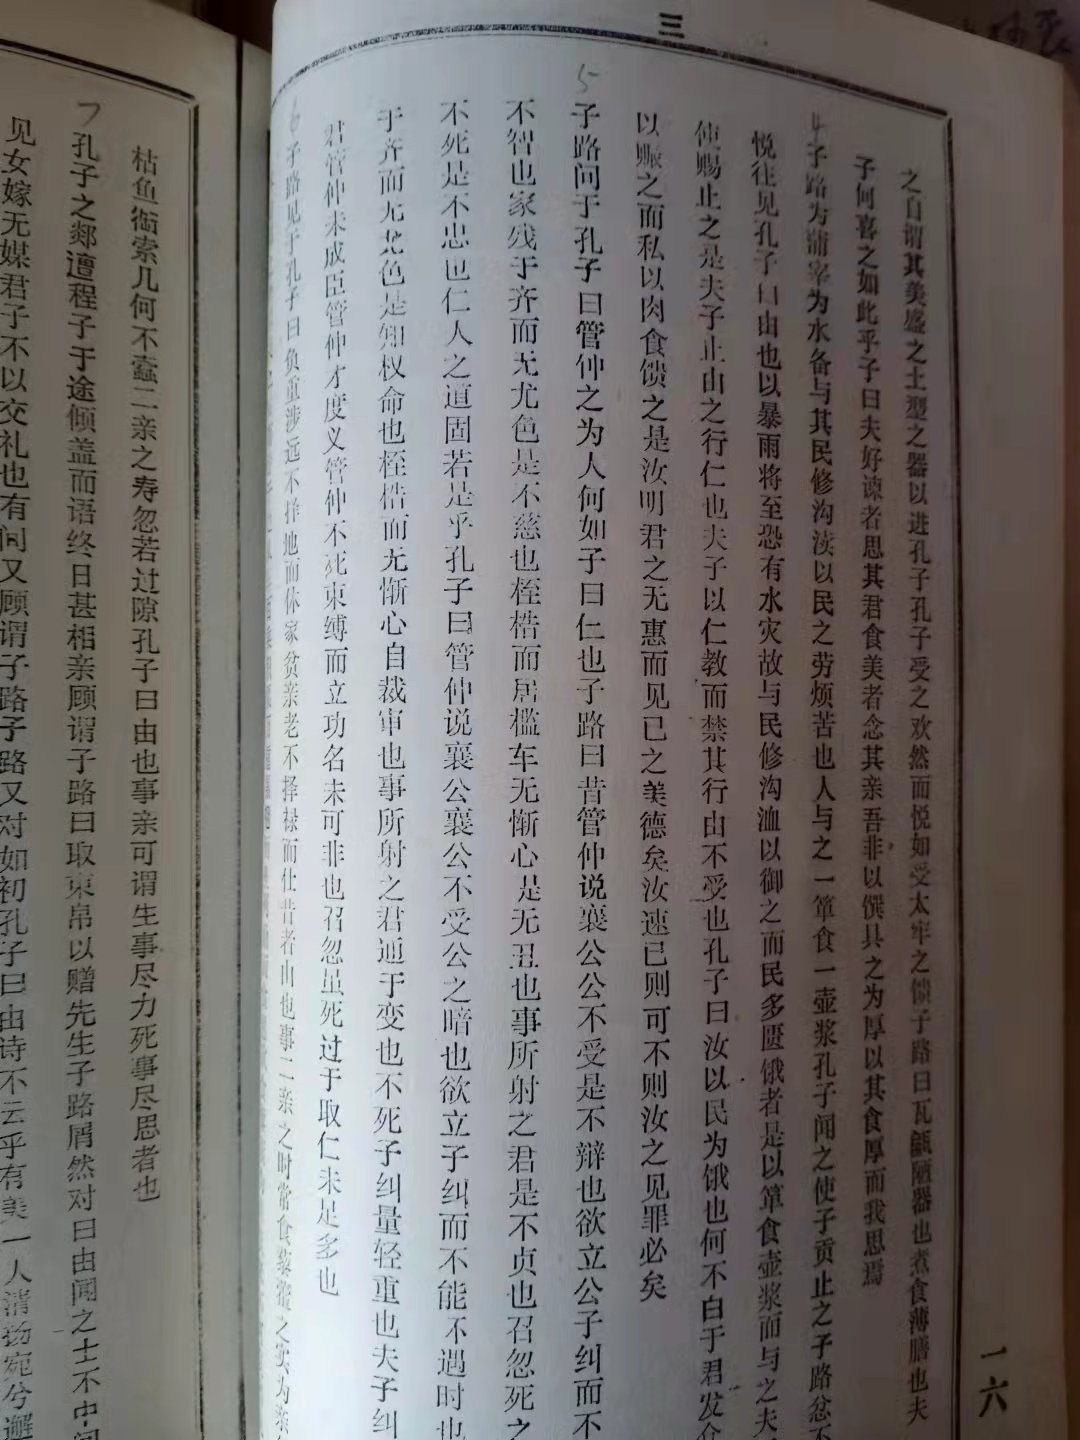 三
一六
之自谓其美盛之土型之器以进孔子孔子受之欢然而悦如受太牢之馈子路曰瓦甂陋器也煮食薄膳也夫
子何喜之如此乎子曰夫好谏者思其君食美者念其亲吾非以馔具之为厚以其食厚而我思焉
4
子路为蒲宰为水备与其民修沟渎以民之劳烦苦也人与之一箪食一壶浆孔子闻之使子贡止之子路忿不
悦往见孔子曰由也以暴雨将至恐有水灾故与民修沟洫以御之而民多匮饿者是以箪食壶浆而与之夫
使赐止之是夫子止由之行仁也夫子以仁教而禁其行由不受也孔子曰汝以民为饿也何不白于君发仓
以赈之而私以肉食馈之是汝明君之无惠而见已之美德矣汝速已则可不则汝之见罪必矣
5
子路问于孔子曰管仲之为人何如子曰仁也子路曰昔管仲说襄公公不受是不辩也欲立公子纠而不
不智也家残于齐而无尤色是不慈也桎梏而居槛车无惭心是无丑也事所射之君是不贞也召忽死之
不死是不忠也仁人之道固若是乎孔子曰管仲说襄公襄公不受公之暗也欲立子纠而不能不遇时也
于齐而无尤色是知权命也桎梏而无惭心自裁审也事所射之君通于变也不死子纠量轻重也夫子纠
君管仲未成臣管仲才度义管仲不死束缚而立功名未可非也召忽虽死过于取仁未足多也
6
子路见于孔子曰负重涉远不择地而休家贫亲老不择禄而仕昔者由也事二亲之时常食藜藿之实为亲
枯鱼衔索几何不蠹二亲之寿忽若过隙孔子曰由也事亲可谓生事尽力死事尽思者也
7
孔子之郯遭程子于途倾盖而语终日甚相亲顾谓子路曰取束帛以赠先生子路屑然对曰由闻之士不中间
见女嫁无媒君子不以交礼也有间又顾谓子路子路又对如初孔子曰由诗不云乎有美一人清扬宛兮邂